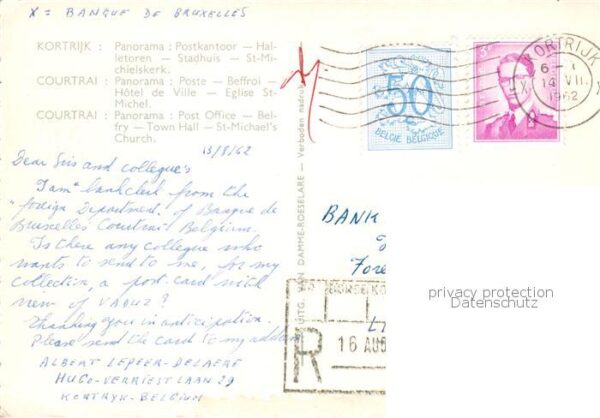 X = BANQUE DE BRUXELLES
KORTRIJK : Panorama : Postkantoor — Hal-
letoren — Stadhuis — St-Mi-
chielskerk.
COURTRAI : Panorama : Poste — Beffroi —
Hôtel de Ville — Eglise St-
Michel.
COURTRAI : Panorama : Post Office — Bel-
fry — Town Hall — St-Michael's
Church.
Dear Sirs and collegue's
I am bankclerk from the
"foreign Department" of Banque de
Bruxelles Courtrai Belgium.
Is there any collegue who
wants to send to me, for my
collection, a post-card with
view of VADUZ?
Thanking you in anticipation.
Please send the card to my address
ALBERT LEPEER-DELAERE
HUGO-VERRIESTLAAN 29
KORTRYK-BELGIUM
UITG. VAN DAMME-ROESELARE — Verboden nadruk
50
BELGIE BELGIQUE
KORTRIJK
14 VII.
1962
BANK
Fore
privacy protection
Datenschutz
R
16 AUG